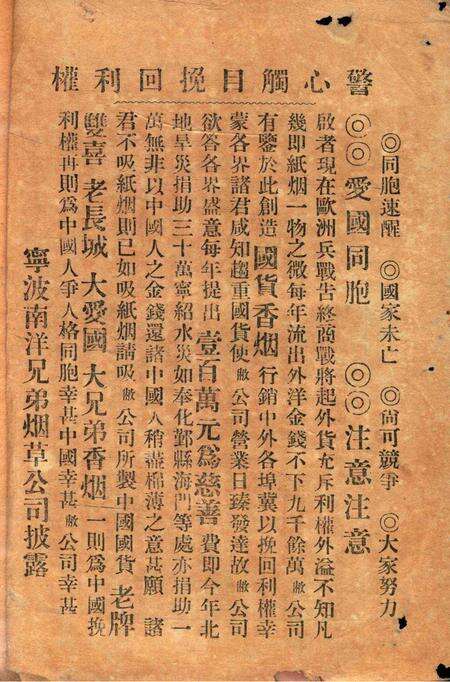 警心觸目挽回利權
◎同胞速醒 ◎國家未亡 ◎尚可競爭 ◎大家努力
◎◎愛國同胞 ◎◎注意注意
啟者現在歐洲兵戰告終商戰將起外貨充斥利權外溢不知凡
幾即紙烟一物之微每年流出外洋金錢不下九千餘萬敝公司
有鑒於此創造國貨香烟行銷中外各埠冀以挽回利權幸
蒙各界諸君咸知趨重國貨使敝公司營業日臻發達故敝公司
欲答各界盛意每年提出壹百萬元為慈善費即今年北
地旱災捐助三十萬寧紹水災如奉化鄞縣海門等處亦捐助一
萬無非以中國人之金錢還諸中國人稍盡棉薄之意甚願諸
君不吸紙烟則已如吸紙烟請吸敝公司所製中國國貨老牌
雙喜 老長城 大愛國 大兄弟香烟一則為中國挽
利權再則為中國人爭人格同胞幸甚中國幸甚敝公司幸甚
寧波南洋兄弟烟草公司披露